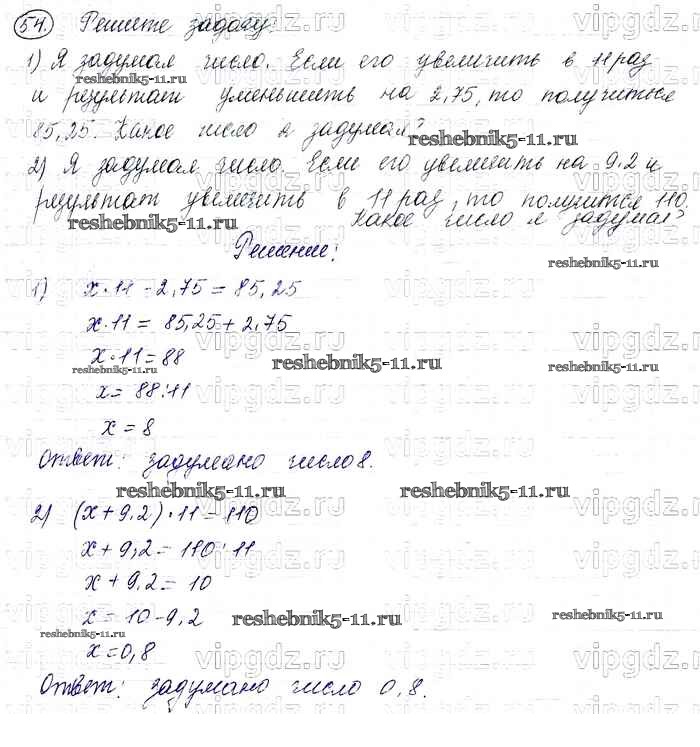 54. Решите задачу:
1) Я задумал число. Если его увеличить в 11 раз
и результат уменьшить на 2,75, то получиться
85,25. Какое число я задумал?
2) Я задумал число. Если его увеличить на 9.2 и
результат увеличить в 11 раз, то получится 110.
Какое число я задумал?
Решение:
1) x·11-2,75=85,25
x·11= 85,25+2,75
x·11=88
x= 88:11
x=8
Ответ: задумано число 8.
2) (x+9.2)·11=110
x+9,2=110:11
x+9.2= 10
x=10-9,2
x=0,8
Ответ: задумано число 0,8.
reshebnik5-11.ru
vipgdz.ru